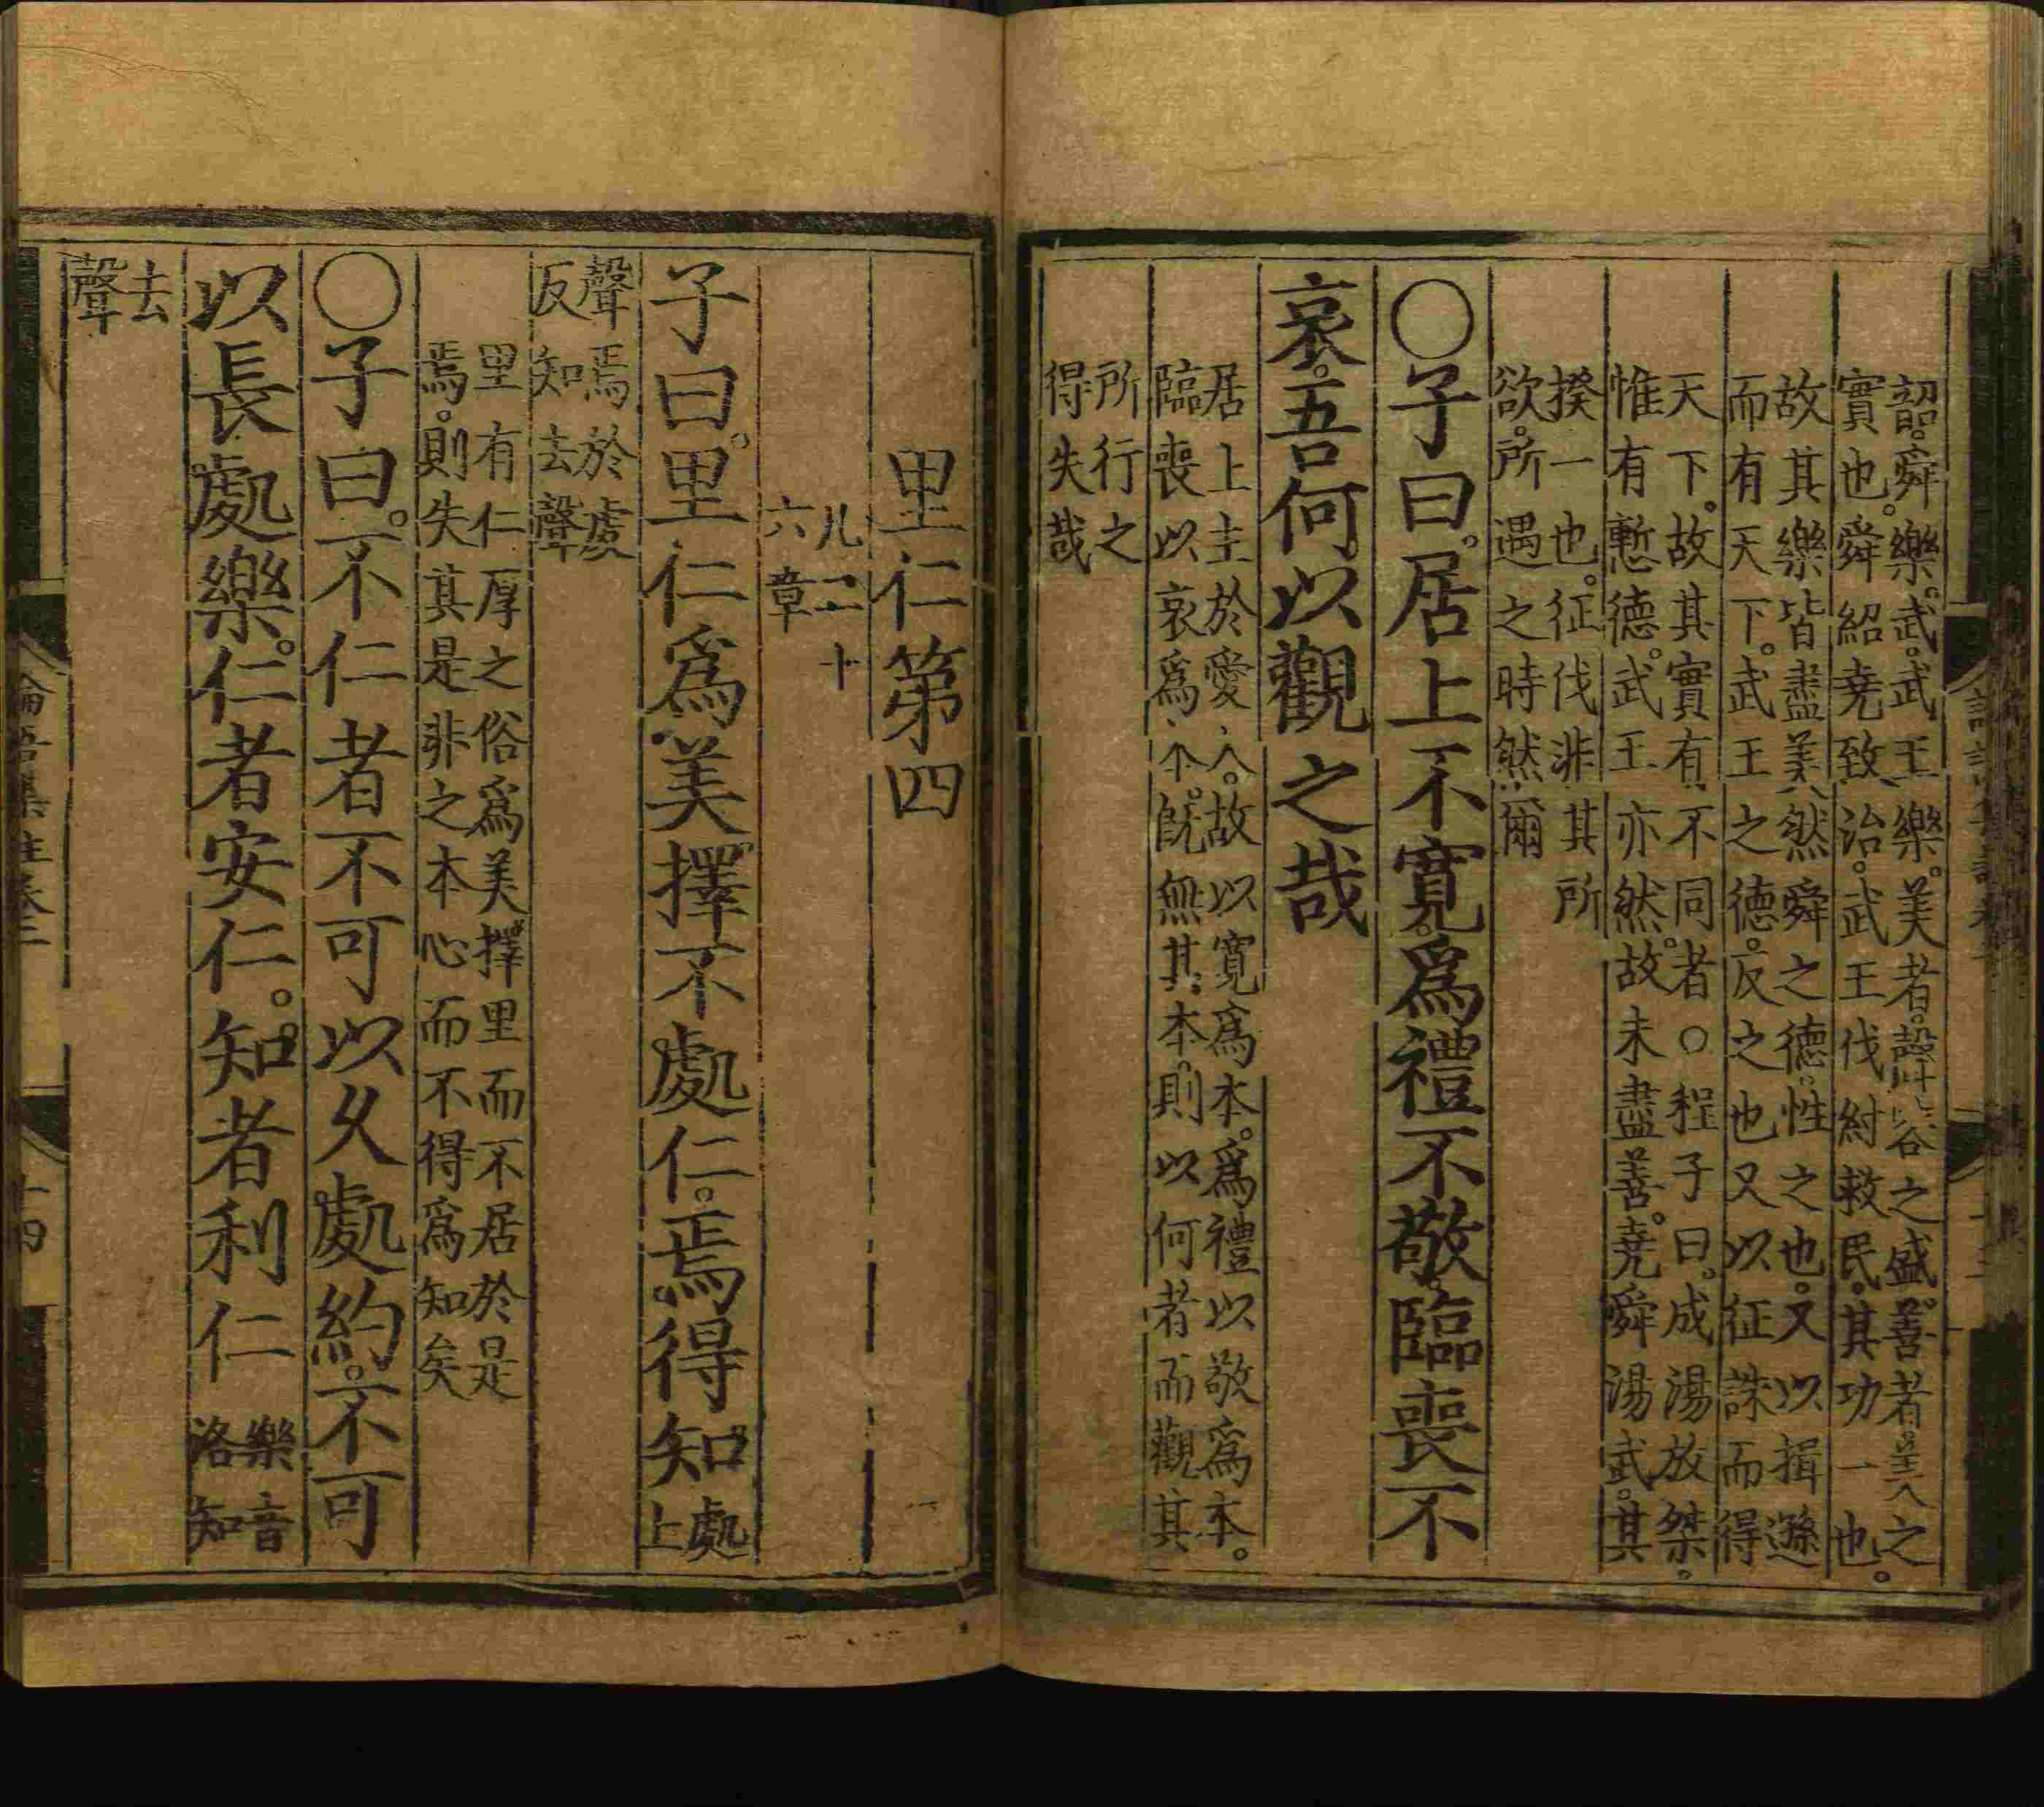 韶。舜樂。武。武王樂。美者。聲容之盛。善者。美之
實也。舜紹堯致治。武王伐紂救民。其功一也。
故其樂皆盡美。然舜之德。性之也。又以揖遜
而有天下。武王之德。反之也又以征誅而得
天下。故其實有不同者○程子曰。成湯放桀。
惟有慙德。武王亦然。故未盡善。堯舜湯武。其
揆一也。征伐非其所
欲。所遇之時然爾
○子曰。居上不寬。爲禮不敬。臨喪不
哀。吾何以觀之哉
居上主於愛人。故以寬爲本。爲禮以敬爲本。
臨喪以哀爲本。既無其本。則以何者而觀其
所行之
得失哉
里仁第四
凡二十
六章
子曰。里仁爲美擇不處仁。焉得知
處
上
聲焉於虔
反知去聲
里有仁厚之俗爲美擇里而不居於是
焉。則失其是非之本心而不得爲知矣
○子曰。不仁者不可以久處約。不可
以長處樂。仁者安仁。知者利仁
樂音
洛知
去
聲
論語集註卷二
十四